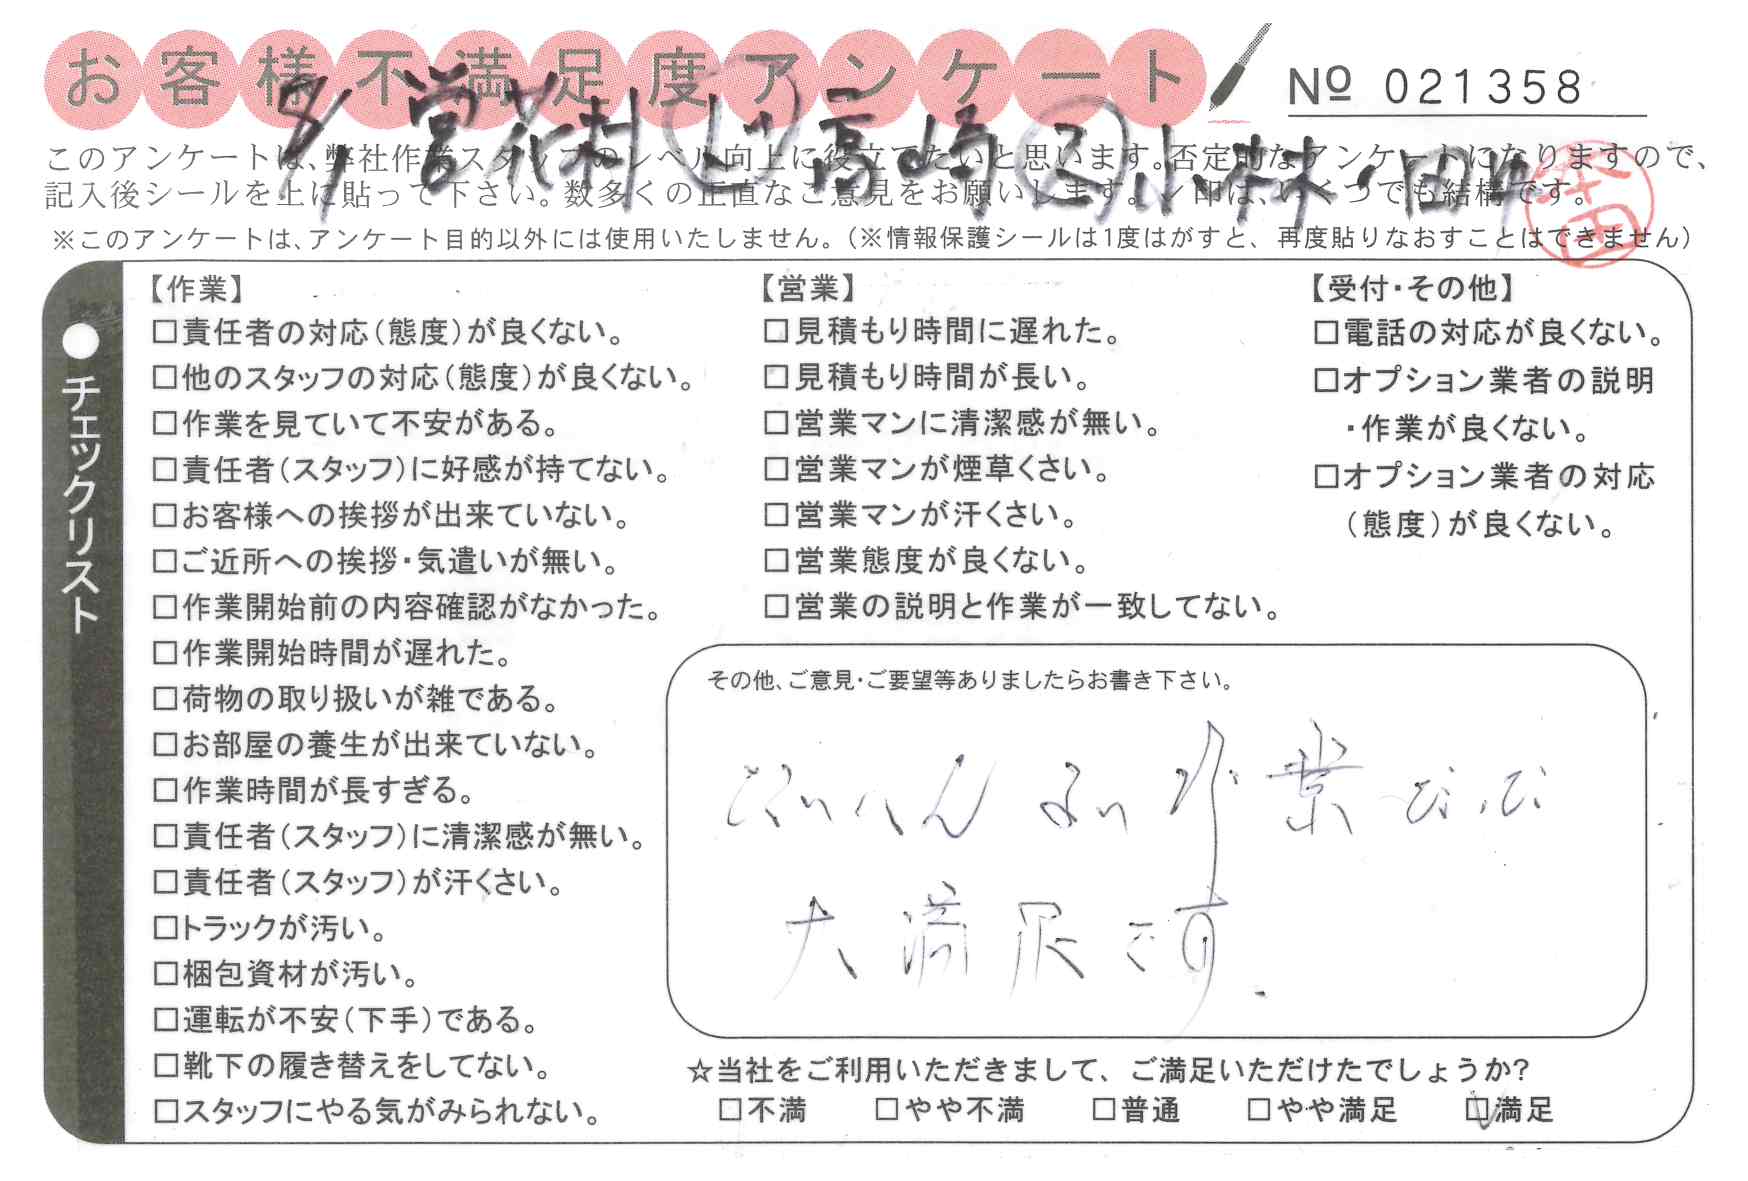 お客様不満足度アンケート
№ 021358
8/1 営 花村 山 長崎 又 小林・田中
このアンケートは、弊社作業スタッフのレベル向上に役立てたいと思います。否定的なアンケートになりますので、
記入後シールを上に貼って下さい。数多くの正直なご意見をお願いします。✓印は、いくつでも結構です。
※このアンケートは、アンケート目的以外には使用いたしません。（※情報保護シールは1度はがすと、再度貼りなおすことはできません）
●チェックリスト
【作業】
□責任者の対応（態度）が良くない。
□他のスタッフの対応（態度）が良くない。
□作業を見ていて不安がある。
□責任者（スタッフ）に好感が持てない。
□お客様への挨拶が出来ていない。
□ご近所への挨拶・気遣いが無い。
□作業開始前の内容確認がなかった。
□作業開始時間が遅れた。
□荷物の取り扱いが雑である。
□お部屋の養生が出来ていない。
□作業時間が長すぎる。
□責任者（スタッフ）に清潔感が無い。
□責任者（スタッフ）が汗くさい。
□トラックが汚い。
□梱包資材が汚い。
□運転が不安（下手）である。
□靴下の履き替えをしてない。
□スタッフにやる気がみられない。
【営業】
□見積もり時間に遅れた。
□見積もり時間が長い。
□営業マンに清潔感が無い。
□営業マンが煙草くさい。
□営業マンが汗くさい。
□営業態度が良くない。
□営業の説明と作業が一致してない。
【受付・その他】
□電話の対応が良くない。
□オプション業者の説明
・作業が良くない。
□オプション業者の対応
（態度）が良くない。
その他、ご意見・ご要望等ありましたらお書き下さい。
たいへん よい 作業
大満足です.
☆当社をご利用いただきまして、ご満足いただけたでしょうか?
□不満 □やや不満 □普通 □やや満足 ☑満足